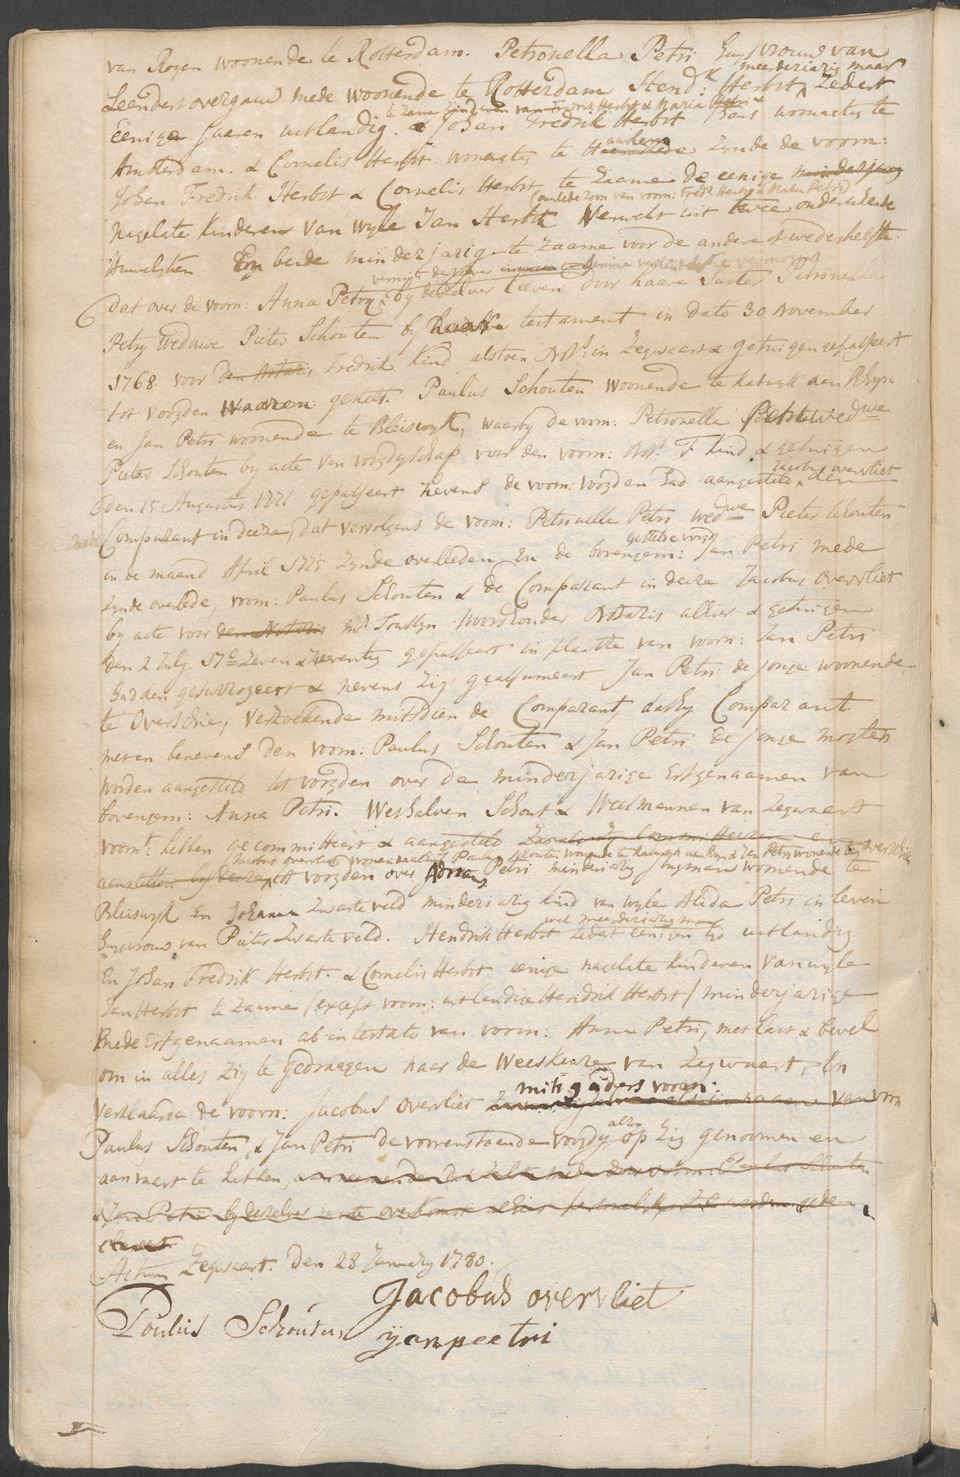 van Rogen woonende te Rotterdam. Petronella Petri Huysvrouw van
meerderjarig maar
Leendert overgauw mede woonende te Rotterdam Hend:k Herbst, Zedert
te zame kinderen van Fredrik Herbst & Maria Petri
Eenige Jaaren uitlandig. & Johan Fredrik Herbst woonagtig te
aarlem
Amsterdam. & Cornelis Herbst wonagtig te Zynde de voorn:
Johan Fredrik Herbst & Cornelis Herbst te Zaame de eenige minderjarig
(overlede zoon van voorn: Fredk Herbst & Maria Petri)
nagelate kinderen van wyle Jan Herbst Verwekt uit twee onderscheide
Huwelyken En beide minderjarig te Zaame voor de andere of wederhelfte.
dat over de voorn: Anna Petry, by derselver leeven door haare Suster Petronella
Petry weduwe Pieter Schouten by haare testament in dato 30 November
1768 voor den Notaris Fredrik Kind alstoen Nots: in Zegwaert & getuigen gepasseert
tot voogden waaren gestelt. Paulus Schouten woonende te Katwyk aan Rhyn
en Jan Petri woonende te Bleiswyk, waarby de voorn: Petronella Petri wedwe
Pieter Schouten by acte van voogdyschap voor den voorn: Nots: F Kind & getuigen
Jacobus overvliet
den 15 Augustus 1771 gepasseert nevens de voorn: voogden had aangesteld, den
mede
Comparant in deeze, dat vervolgens de voorn: Petronella Petri wedwe Pieter Schouten
gestelde voogd
in de maand April 1775 Zynde overleeden En de bovengem: Jan Petri mede
Zynde overlede, voorn: Paulus Schouten & de Comparant in deeze Jacobus overvliet
by acte voor den Notaris Noordzonder Notaris alhier & getuigen
den 2 July 17c Zeven & Zeventig gepasseert in plaatse van voorn: Jan Petri
hadden gesurrogeert & nevens Zig geassumeert Jan Petri de jonge woonende
te Overschie, Verzoekende mitsdien de Comparant, dat hy Comparant
neven benevens den voorn: Paulus Schouten & Jan Petri de jonge mogten
worden aangesteld tot voogden over de minderjarige Erfgenaamen van
bovengem: Anna Petri. Weshalven Schout & Weesmannen van Zegwaert
voornt: hebben gecommitteert & aangesteld
Jacobus overvliet woonen Paulus Schouten woonende te Katwyk aan Rhyn & Jan Petri wonende te overschie
aanstellen by deeze tot voogden over Adriaen Petri minderjarig Jongman woonende te
Bleiswyk En Johanna Zwarteveld minderjarig kind van wyle Alida Petri in leven
wel meerderjarig maar
huysvrouw van Pieter Zwarteveld. Hendrik Herbst Zedert eenigen tyd uitlandig
En Johan Fredrik Herbst. & Cornelis Herbst eenige nagelate kinderen van wyle
Jan Herbst te Zaame /except voorn: uitlandige Hendrik Herbst/ minderjarige
mede Erfgenaamen ab intestato van voorn: Anna Petri, met last & bevel
om in alles Zig te gedraagen naar de Weeskeure van Zegwaert, En
mitsgaders voorn:
verklaarde de voorn: Jacobus overvliet van voorn
alzo
Paulus Schouten, & Jan Petri de voorenstaande voogdy op Zig genoomen en
aanvaart te hebben,
& Jan Petri
Actum Zegwaert. den 28 January 1780.
Jacobus overvliet
Poulus Schouten
yan peetri